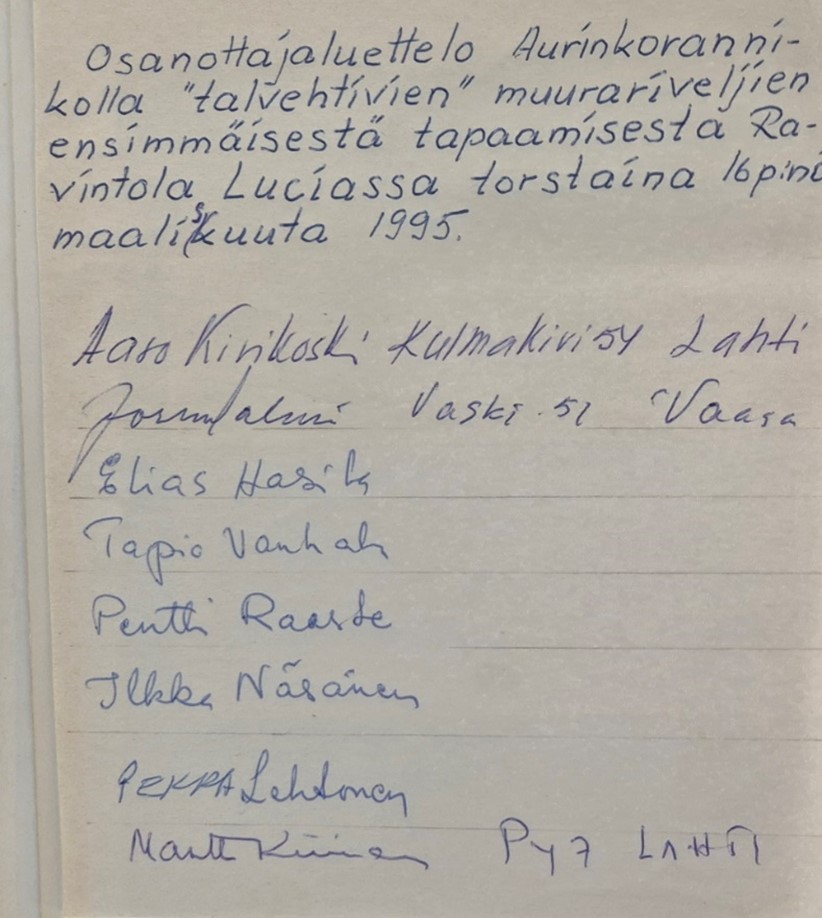 Osanottajaluettelo Aurinkoranni-
kolla "talvehtivien" muurariveljien
ensimmäisestä tapaamisesta Ra-
vintola Luciassa torstaina 16 pnä
maaliskuuta 1995.
Aaro Kivikoski Kulmakivi 54 Lahti
Vaski 51 Vaasa
Elias
Tapio
Pentti Raaste
Ilkka Näsänen
PEKKA Lehtonen
Martti PY7 LAHTI